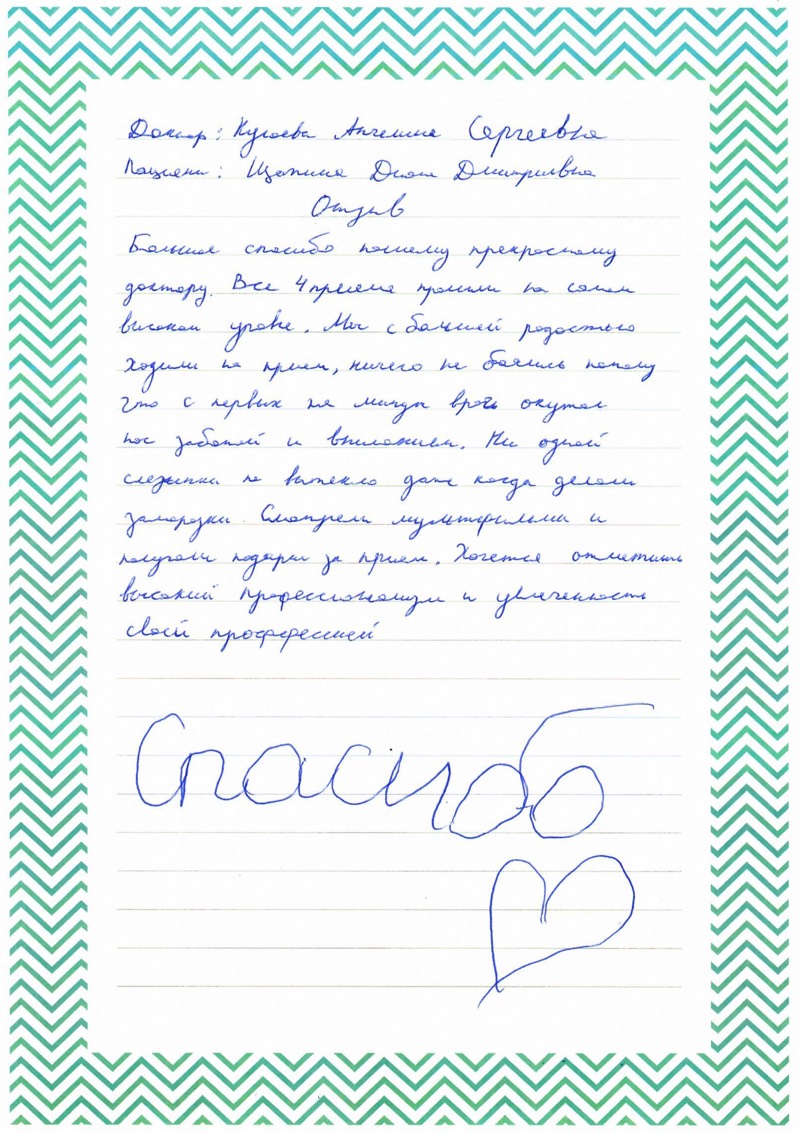 Доктор: Кугаева Ангелина Сергеевна
Пациент: Щепина Диана Дмитриевна
Отзыв
Большое спасибо нашему прекрасному
доктору. Все 4 приема прошли на самом
высоком уровне. Мы с большей радостью
ходили на прием, ничего не боялись потому
что с первых же минут врач окутал
нас заботой и вниманием. Ни одной
слезинки не вытекло даже когда делали
заморозки. Смотрели мультфильмы и
получали подарки за прием. Хочется отметить
высокий профессионализм и увлеченность
своей профессией
Спасибо